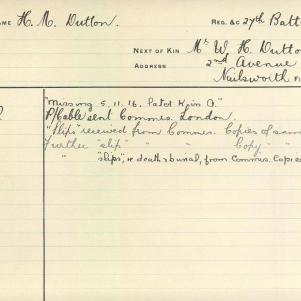 AME H. M. Dutton.
REG. &c 27th Batt
NEXT OF KIN Mr. W. H. Dutto
ADDRESS 2nd Avenue
Nailsworth
"Missing 5.11.16. later K. in A."
P/Cable sent Commrs. London.
"Slip" received from Commrs. Copies of same
Further "slip" " " Copy " "
" "slips", re death & burial, from Commrs. Copie